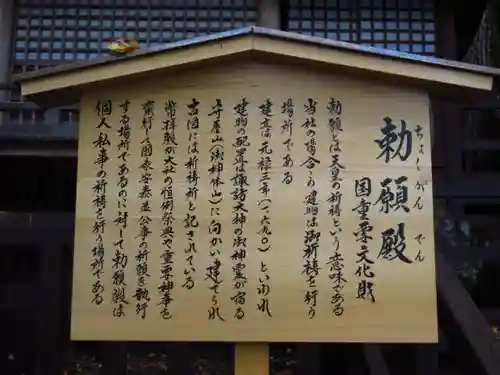 勅願殿
ちょくがんでん
国重要文化財
勅願とは天皇の祈祷という意味である
当社の場合この建物は御祈祷を行う
場所である
建立は元禄三年(一六九〇)といわれ
建物の配置は諏訪大神の御神霊が宿る
守屋山(御神体山)に向かい建てられ
古図には祈祷所と記されている
常拝殿が大社の恒例祭典や重要神事を
斎行し国家安泰など公事の祈願を執行
する場所であるのに対して勅願殿は
個人私事の祈祷を行う場所である